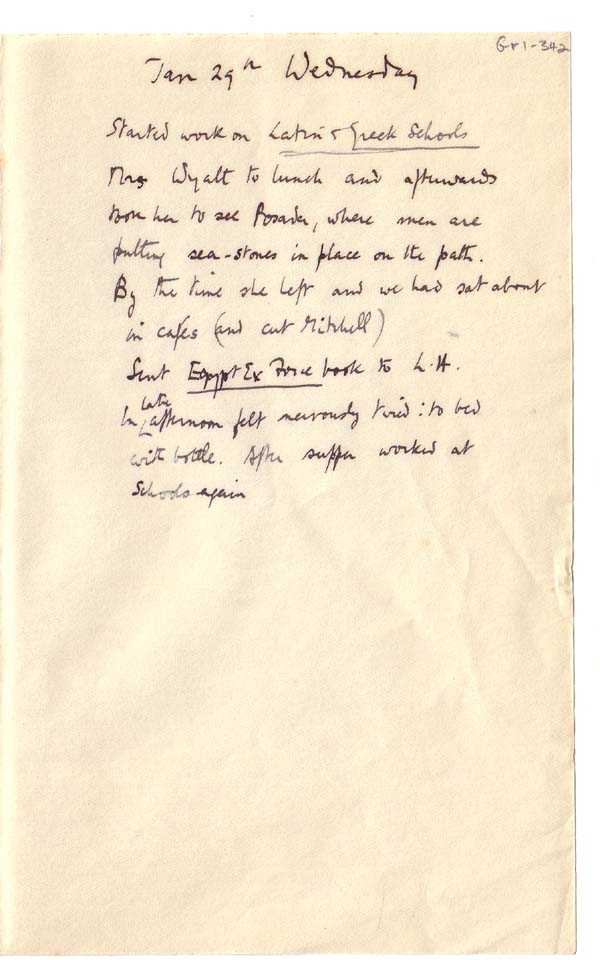 Gr1-342
Jan 29th Wednesday
Started work on Latin & Greek Schools
Mrs Wyatt to lunch and afterwards
took her to see Posada, where men are
putting sea-stones in place on the path.
By the time she left and we had sat about
in cafés (and cut Mitchell)
Sent Egypt Ex Force book to L.H.
In late afternoon felt nervously tired: to bed
with bottle. After supper worked at
Schools again